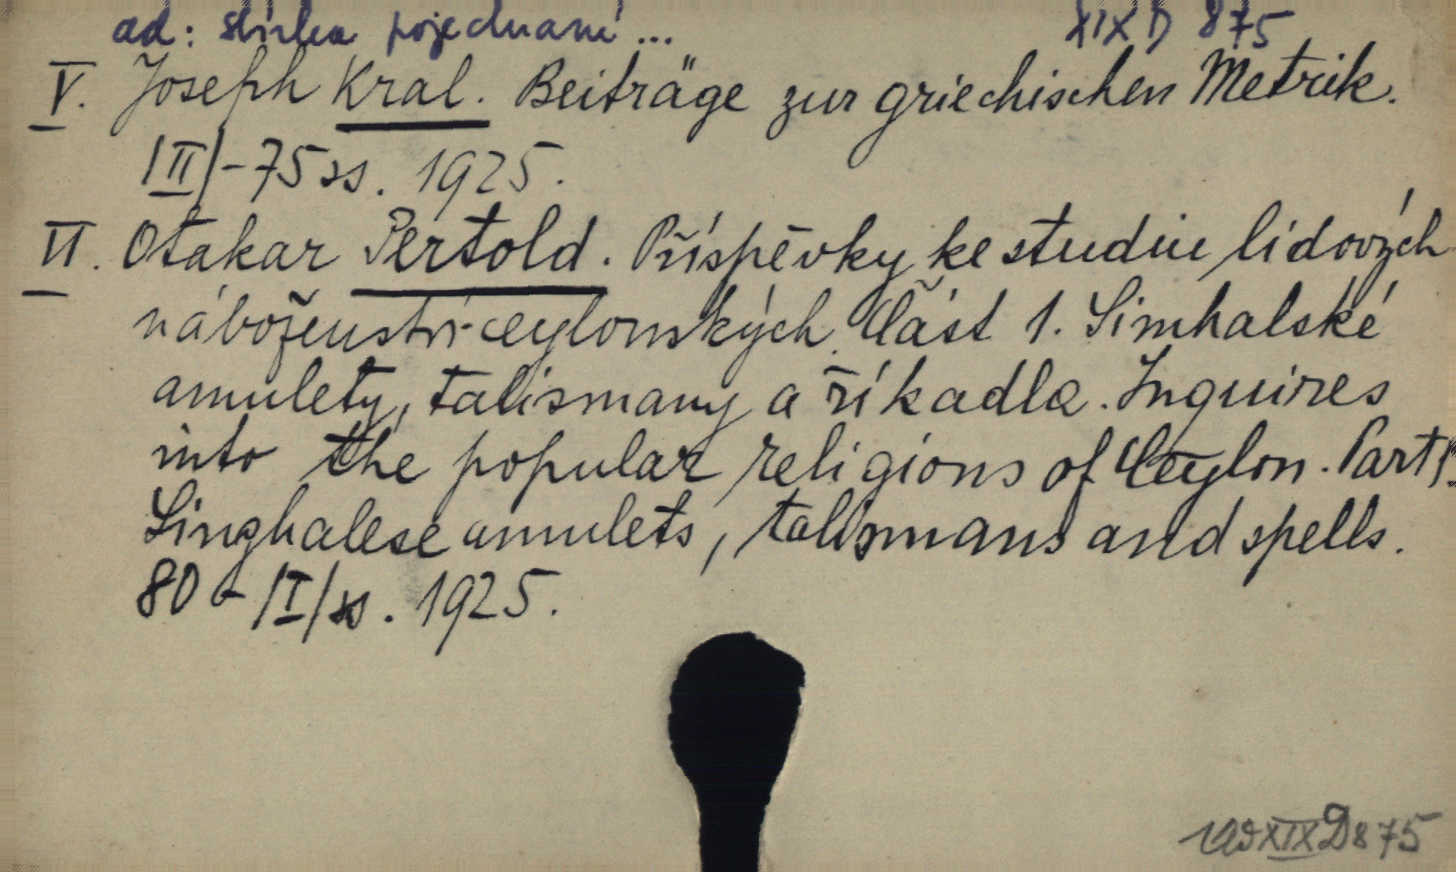 ad: sbírka pojednání ... XIX D 875
V. Joseph Kral. Beiträge zur griechischen Metrik.
/II/-75 ss. 1925.
VI. Otakar Pertold. Příspěvky ke studiu lidových
náboženství ceylonských. Část 1. Simhalské
amulety, talismany a říkadla. Inquires
into the popular religions of Ceylon. Part 1.
Singhalese amulets, talismans and spells.
80 - /I/ ss. 1925.
XIX D 875